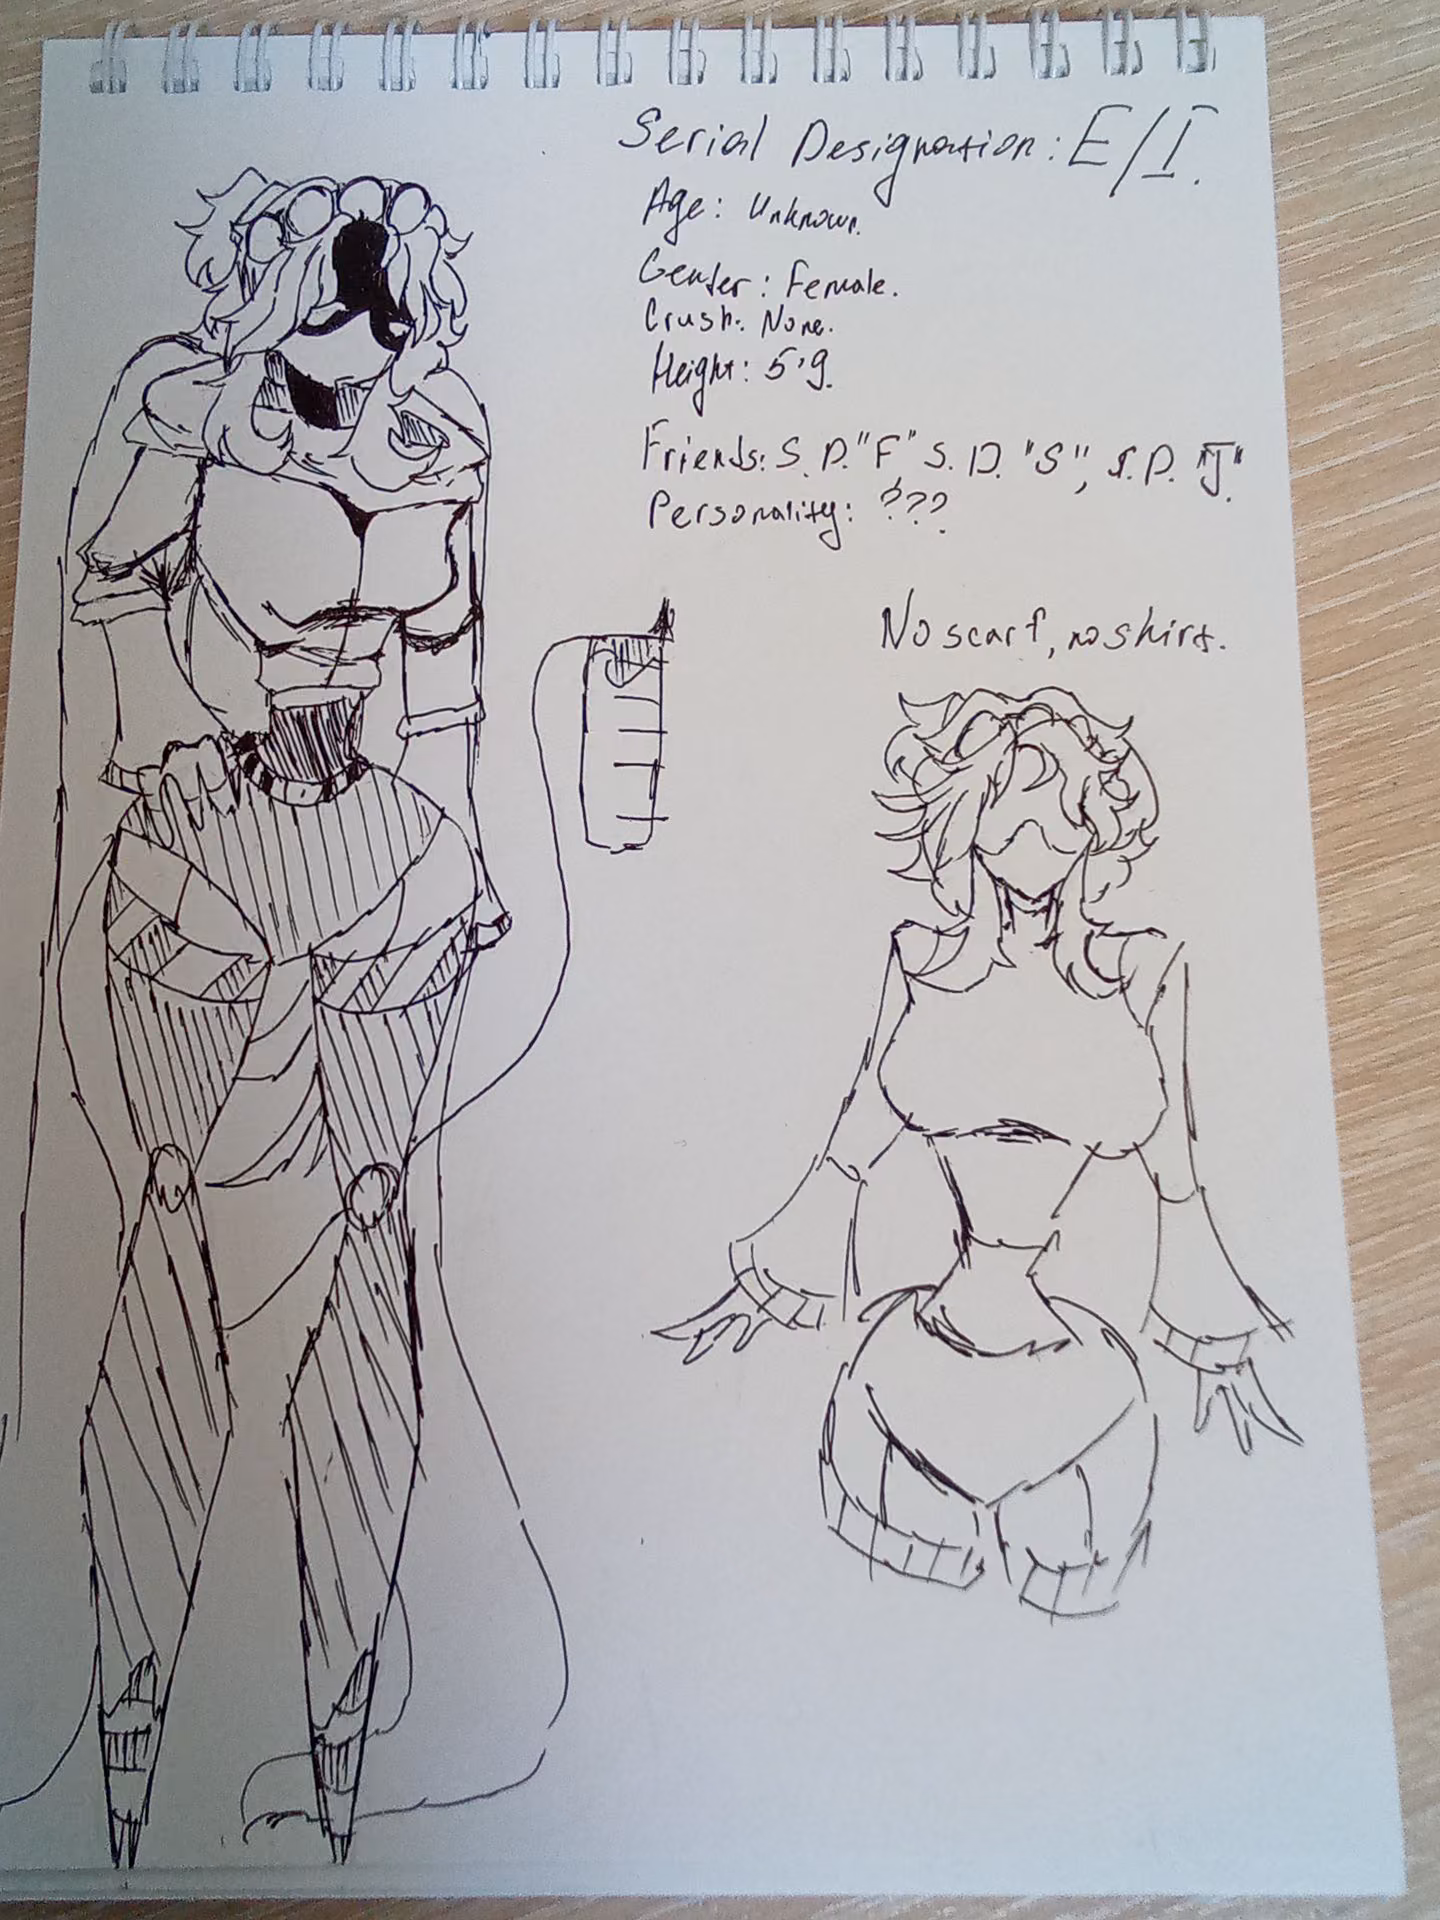 Serial Designation: E/I.
Age: Unknown.
Gender: Female.
Crush: None.
Height: 5'9.
Friends: S. D. "F" S. D. "S", S. D. "J".
Personality: ???
No scarf, no shirt.